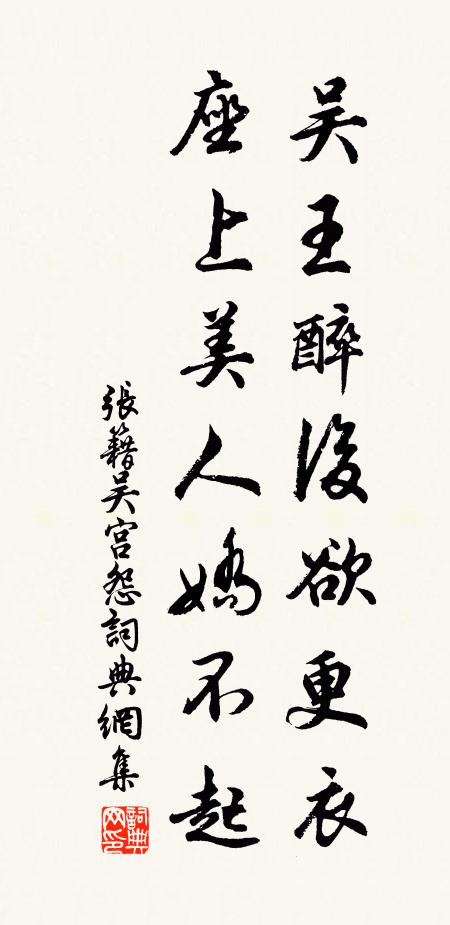 吴王醉後欲更衣
座上美人嬌不起
張籍吴宫怨詞典網集
詞典網印